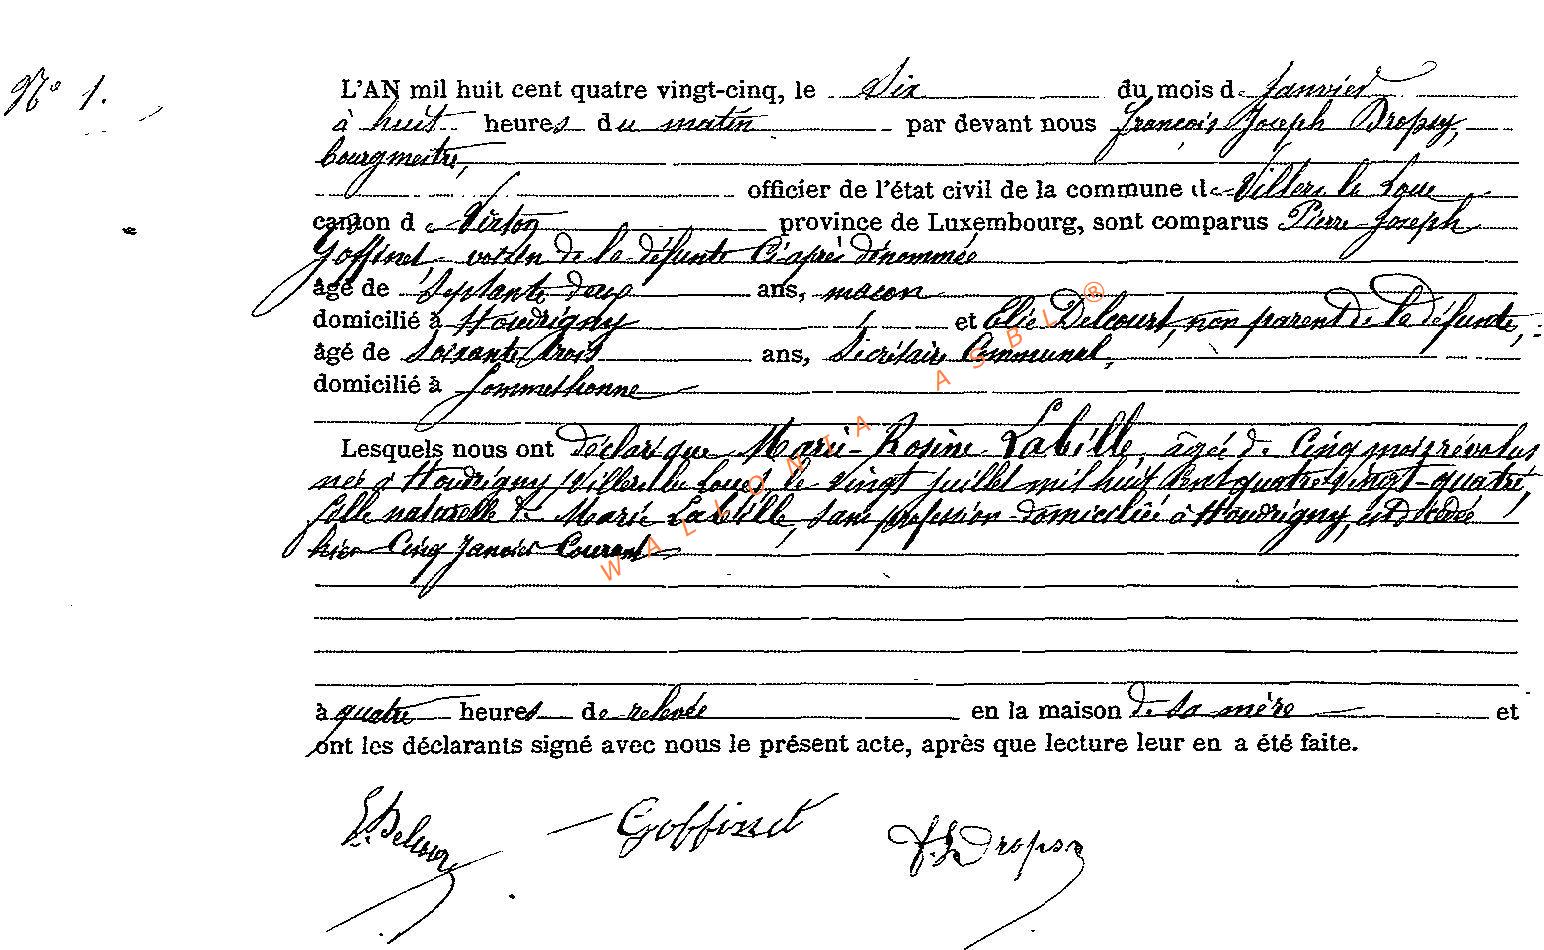 N° 1.
L'AN mil huit cent quatre vingt-cinq, le six du mois de Janvier
à huit heures du matin par devant nous François Joseph Dropsy,
bourgmestre,
officier de l'état civil de la commune de Villers la Loue
canton de Virton province de Luxembourg, sont comparus Pierre Joseph
Goffinet, voisin de la défunte Ci après dénommée
âgé de Septante deux ans, maçon
domicilié à Houdrigny et Elie Delcourt, non parent de la défunte,
âgé de Soixante trois ans, Secrétaire Communal,
domicilié à Sommethonne
Lesquels nous ont déclaré que Marie-Rosine Labille, âgée de Cinq mois révolus
née à Houdrigny (Villers la Loue), le vingt juillet mil huit Cent quatre vingt-quatre,
fille naturelle de Marie Labille, sans profession domiciliée à Houdrigny, est décédée
hier Cinq Janvier Courant
à quatre heures de relevée en la maison de sa mère et
ont les déclarants signé avec nous le présent acte, après que lecture leur en a été faite.
E. Delcourt Goffinet F. J. Dropsy
WALLONIA ASBL ®